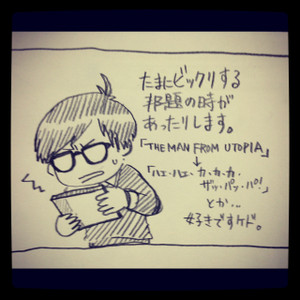 たまにビックリする
邦題の時が
あったりします。
「THE MAN FROM UTOPIA」
↓
「ハエ・ハエ・カ・カ・カ・
ザッ・パッ・パ！」
とか…
好きですケド。